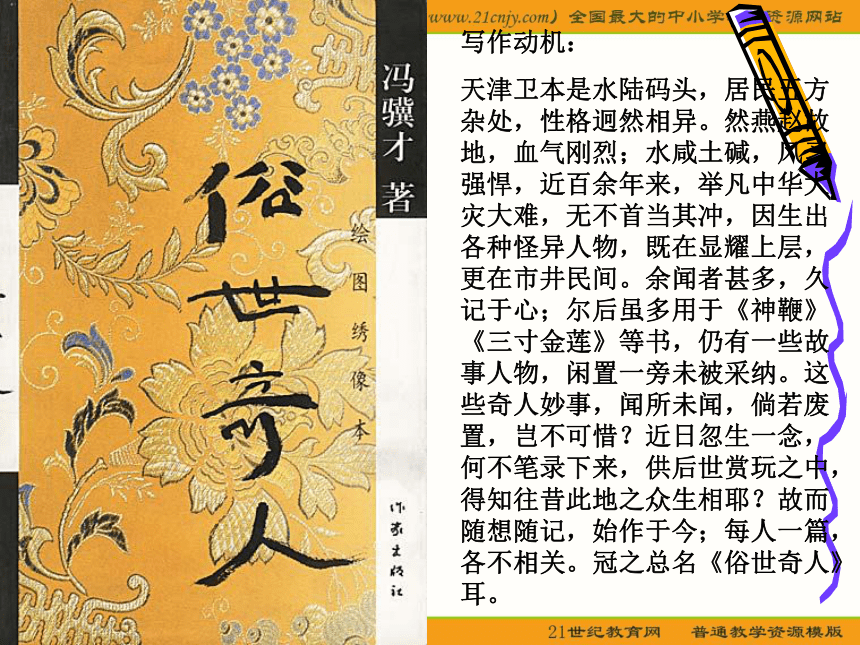 冯骥才 著
俗世奇人
绘图绣像本
作家出版社
www.21cnjy.com）全国最大的中小学 资源网站
写作动机：
天津卫本是水陆码头，居民五方
杂处，性格迥然相异。然燕赵故
地，血气刚烈；水咸土碱，风
强悍，近百余年来，举凡中华大
灾大难，无不首当其冲，因生出
各种怪异人物，既在显耀上层，
更在市井民间。余闻者甚多，久
记于心；尔后虽多用于《神鞭》
《三寸金莲》等书，仍有一些故
事人物，闲置一旁未被采纳。这
些奇人妙事，闻所未闻，倘若废
置，岂不可惜？近日忽生一念，
何不笔录下来，供后世赏玩之中，
得知往昔此地之众生相耶？故而
随想随记，始作于今；每人一篇，
各不相关。冠之总名《俗世奇人》
耳。
21世纪教育网 普通教学资源模版